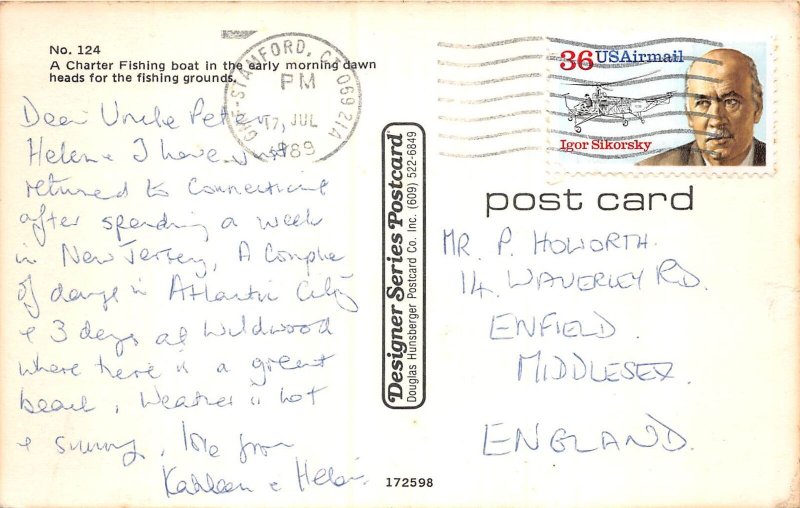 No. 124
A Charter Fishing boat in the early morning dawn
heads for the fishing grounds.
Dear Uncle Peter,
Helen & I have just
returned to Connecticut
after spending a week
in New Jersey, A Couple
of days in Atlantic City
& 3 days at Wildwood
where there is a great
beach, Weather is hot
& sunny, love from
Kathleen & Helen.
STAMFORD, CT 069 21A
PM
17 JUL
1989
Designer Series Postcard
Douglas Hunsberger Postcard Co. Inc. (609) 522-6849
172598
36 USAirmail
Igor Sikorsky
post card
MR. P. HOWORTH.
14. WAVERLEY RD.
ENFIELD.
MIDDLESEX.
ENGLAND.